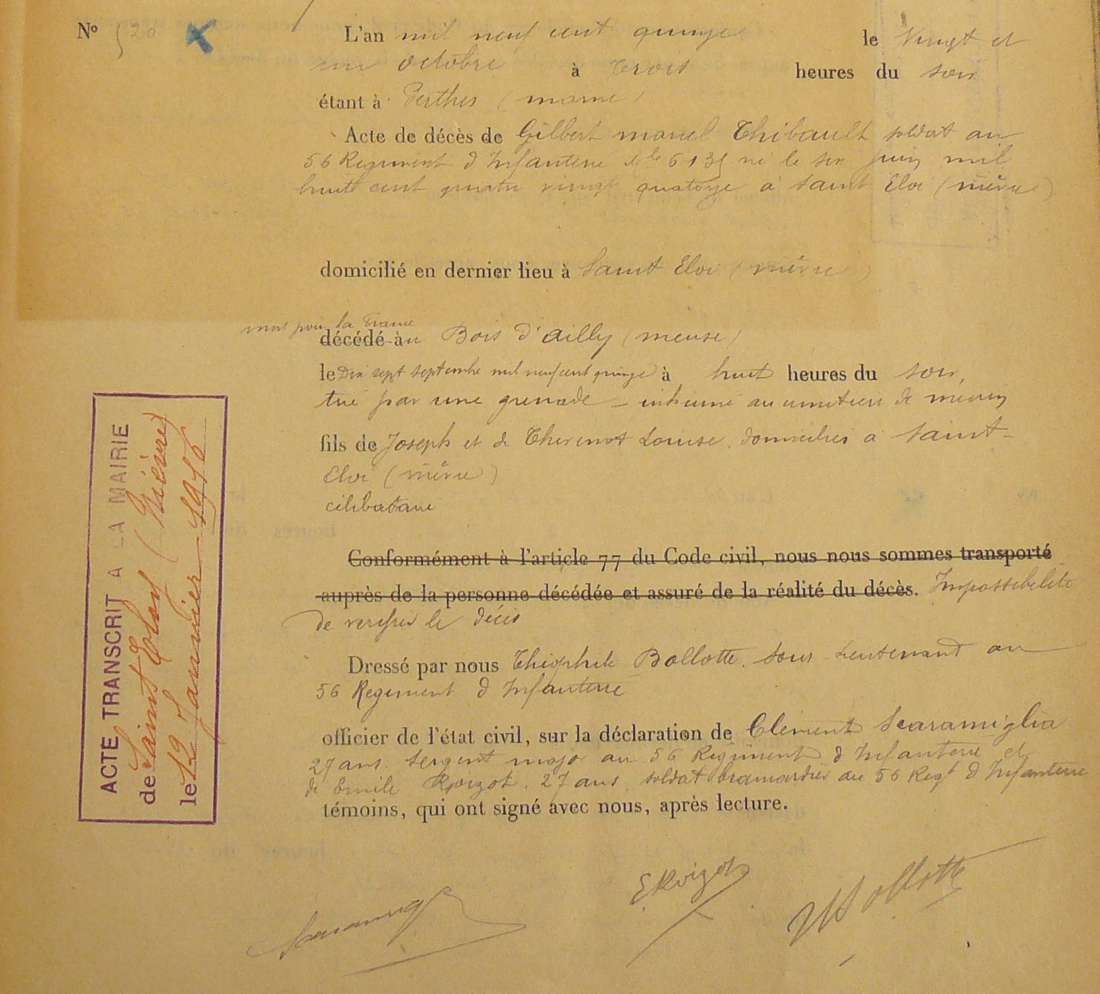 N° 520 L'an mil neuf cent quinze le vingt et
un octobre à trois heures du soir
étant à Perthes (marne)
Acte de décès de Gilbert marcel Thibault soldat au
56 Regiment d Infanterie né le six juin mil
huit cent quatre vingt quatorze à Saint Eloi (nièvre)
domicilié en dernier lieu à Saint Eloi (nièvre)
mort pour la France
décédé au Bois d'ailly (meuse)
le Dix sept septembre mil neuf cent quinze à huit heures du soir,
tué par une grenade – inhumé au cimetière de
fils de Joseph et de Thevenot Louise domiciliés à Saint-
Eloi (nièvre)
célibataire
Conformément à l'article 77 du Code civil, nous nous sommes transporté
auprès de la personne décédée et assuré de la réalité du décès. Impossibilité
de verifier le décès
Dressé par nous Théophile Bollotte. Sous Lieutenant au
56 Regiment d Infanterie
officier de l'état civil, sur la déclaration de Clément Scaramiglia
27 ans. Sergent major au 56 Régiment d Infanterie et
de Emile Roizot. 27 ans. soldat brancardier au 56 Regt d Infanterie
témoins, qui ont signé avec nous, après lecture.
ERoizot
Bollotte
ACTE TRANSCRIT A LA MAIRIE
de Saint Eloy (Nièvre)
le 12 Janvier 1916